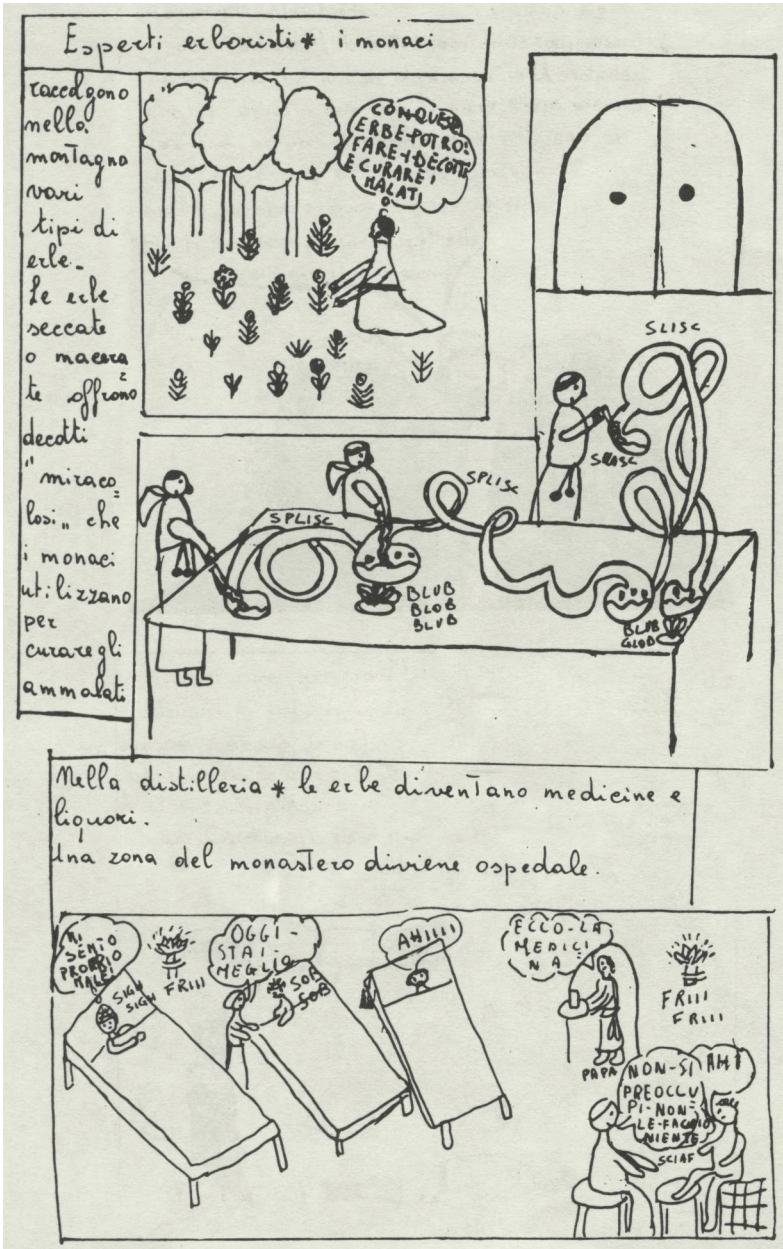 Esperti erboristi * i monaci
raccolgono
nella
montagna
vari
tipi di
erbe.
Le erbe
seccate
o macera=
te offrono
decotti
"miraco=
losi" che
i monaci
utilizzano
per
curare gli
ammalati
CON QUESTE
ERBE-POTRO=
FARE-I DECOTTI
E CURARE I
MALATI
SLISC
SPLISC
SPLISC
BLUB
BLOB
BLUB
BLUB
GLOB
Nella distilleria * le erbe diventano medicine e
liquori.
Una zona del monastero diviene ospedale.
MI
SENTO
PROPRIO
MALE!
SIGH
SIGH
FRIII
OGGI-
STAI-
MEGLIO
SOB
SOB
AHIIII
ECCO-LA
MEDICI
NA
PAPA
FRIII
FRIII
NON-SI
PREOCCU
PI-NON=
LE-FACCIO
NIENTE
AHI
SCIAF